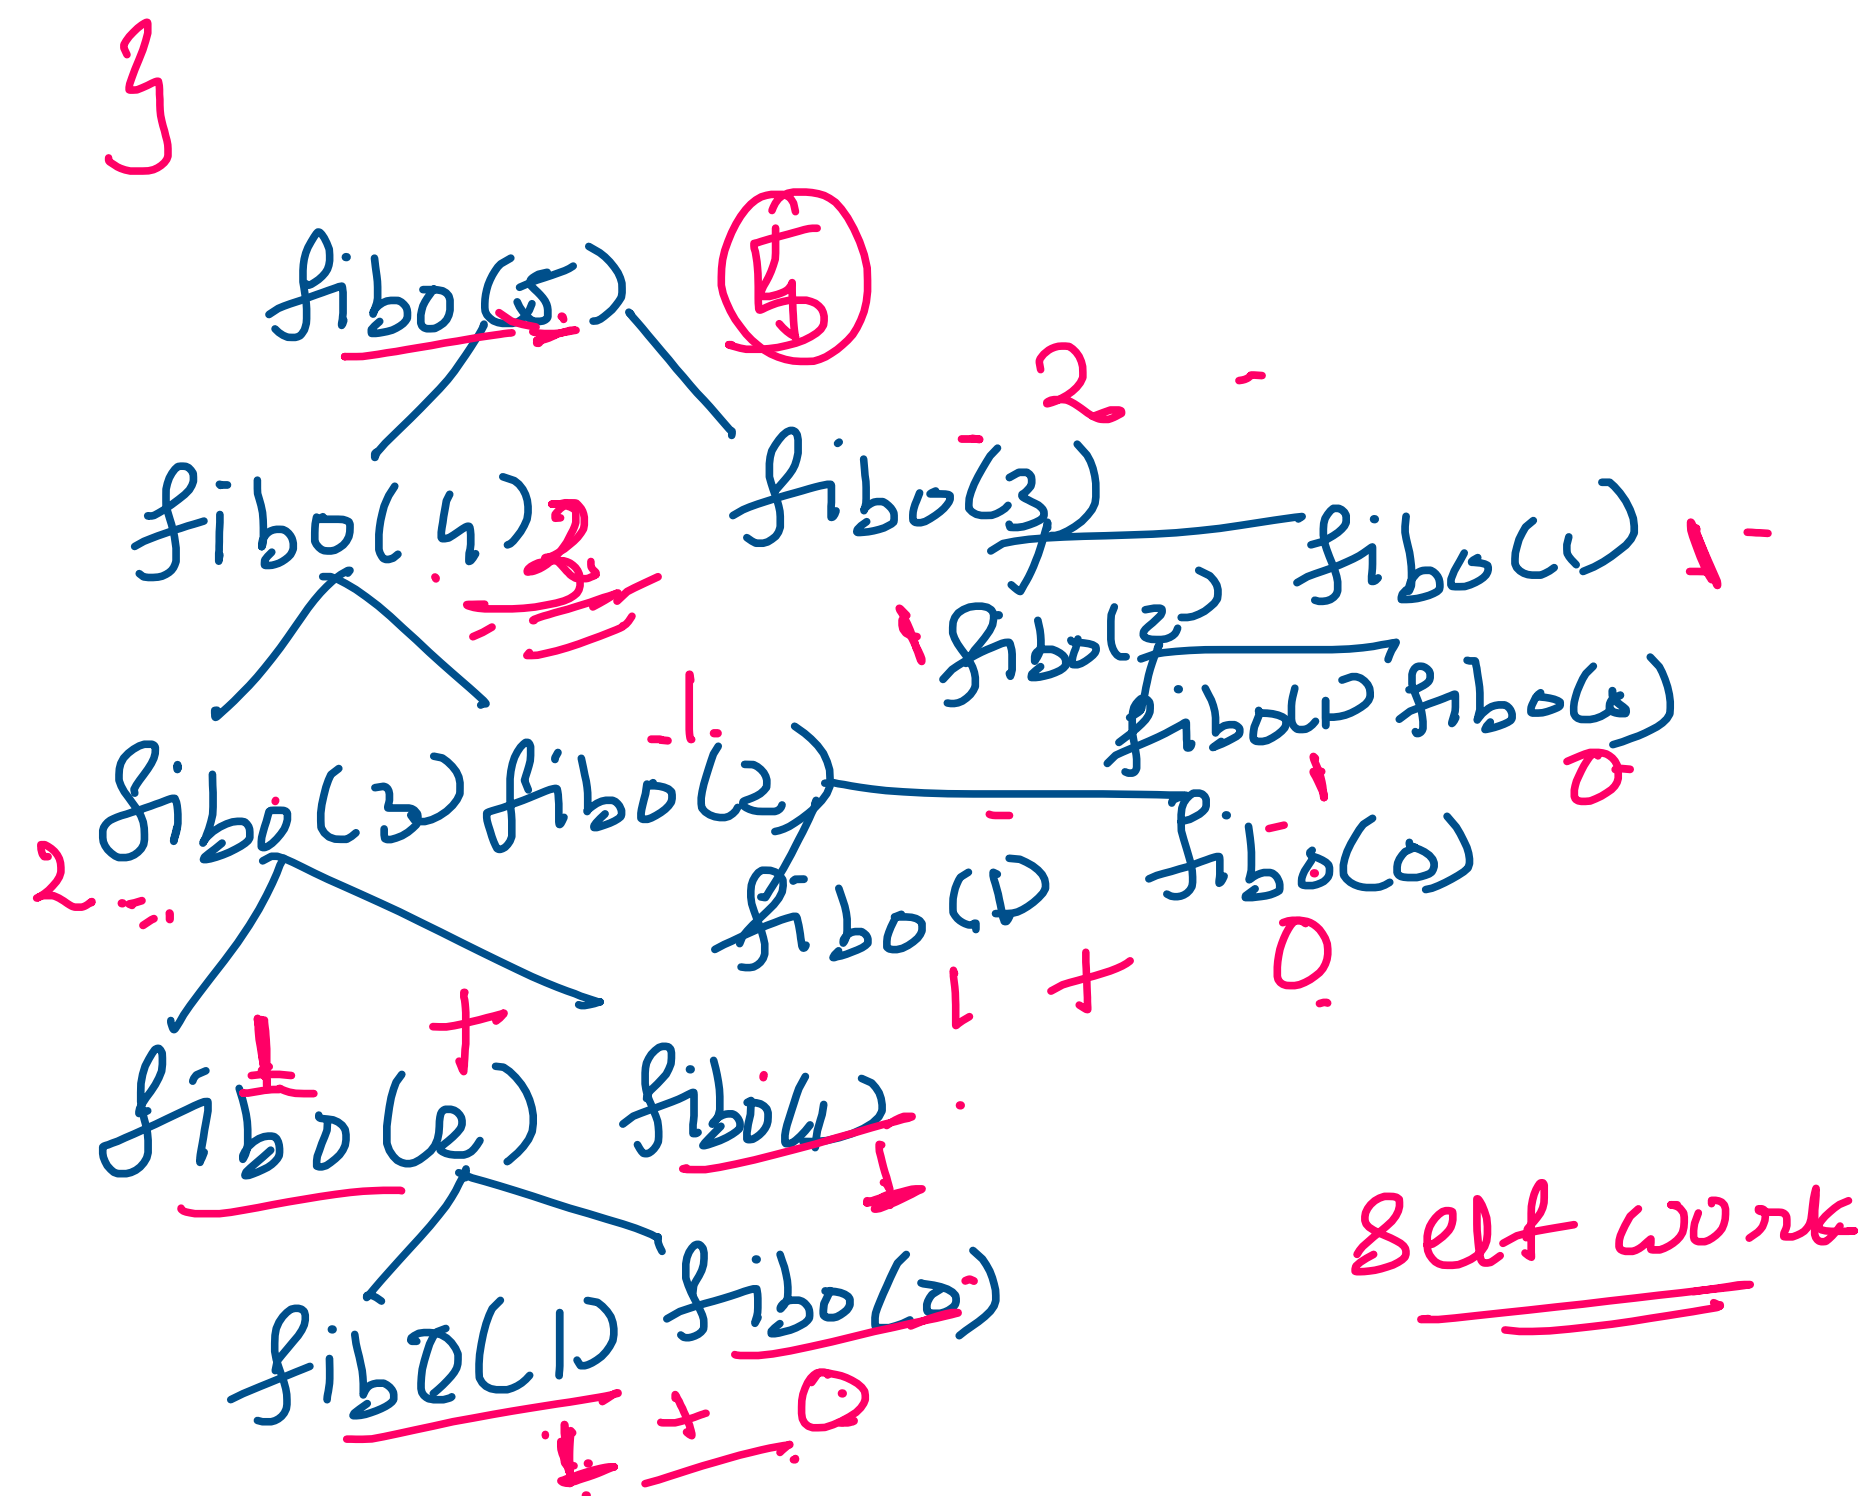 }
fibo(5) 5
2
fibo(4) 3 fibo(3) fibo(1) 1
1 fibo(2)
fibo(1) fibo(0)
1 0
1
fibo(3) fibo(2)
2 fibo(1) fibo(0)
1 + 0
1 +
fibo(2) fibo(1)
1
self work
fibo(1) fibo(0)
1 + 0